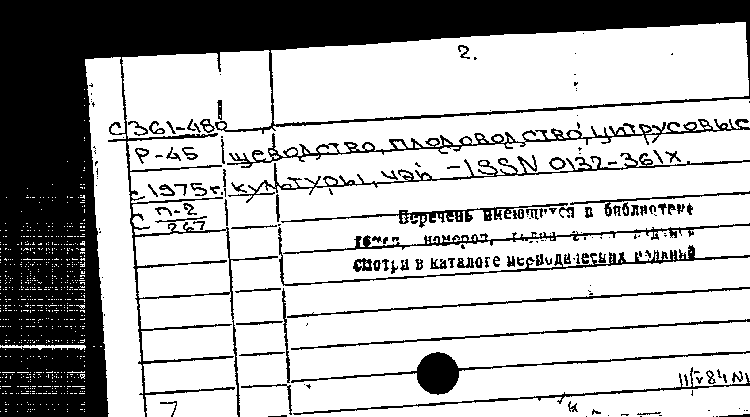 2.
С361-480
Р-45 щеводство, плодоводство, цитрусовые
с 1975г. культуры, чай -ISSN 0132-361X.
С П-2/267
Перечень имеющихся в библиотеке
номеров,
смотри в каталоге периодических изданий
7